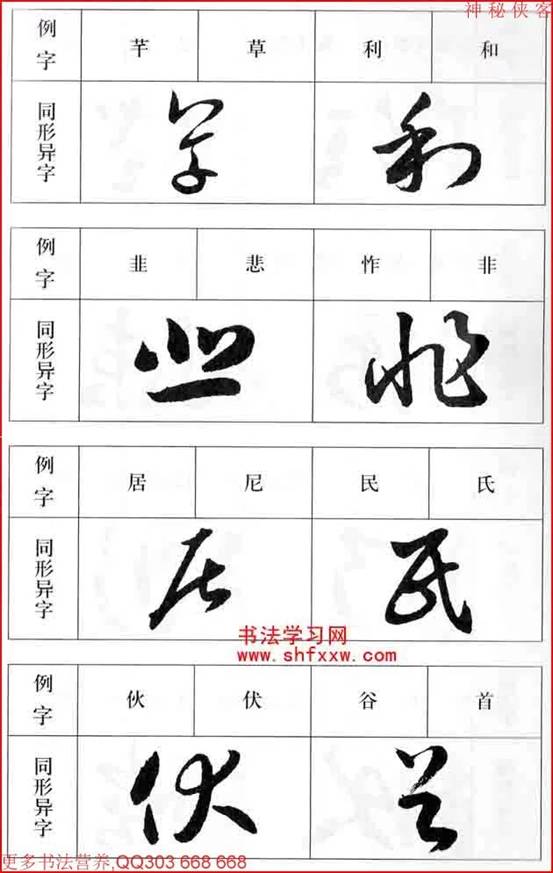 神秘侠客
例字 芊 草 利 和
同形异字
例字 韭 悲 怍 非
同形异字
例字 居 尼 民 氏
同形异字
书法学习网
www.shfxxw.com
例字 伙 伏 谷 首
同形异字
更多书法营养,QQ303 668 668